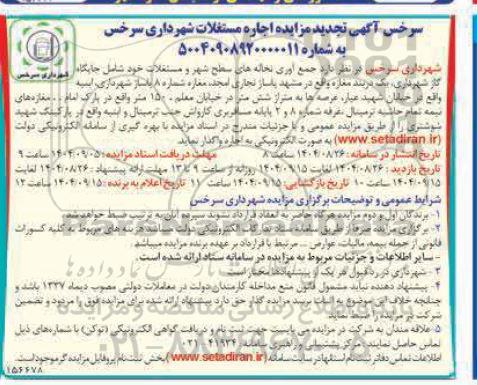 سرخس آگهی تجدید مزایده اجاره مستغلات شهرداری سرخس
به شماره ۵۰۰۴۰۹۰۸۹۲۰۰۰۰۰۱۱
شهرداری سرخس
شهرداری سرخس در نظر دارد جمع آوری نخاله های سطح شهر و مستغلات خود شامل جایگاه
گاز شهرداری، یک دربند مغازه واقع در مشهد پاساژ تجاری امجد، مغازه شماره ۸ پاساژ شهرداری، ابنیه
واقع در خیابان شهید عیار، عرصه ها به متراژ شش متر در خیابان معلم، ۱۵۰ متر واقع در پارک امام، مغازه‌های
نیمه تمام حاشیه ترمینال غرفه شماره ۸ و ۲ پایانه مسافربری کارواش جنب ترمینال و ابنیه واقع در پارکینگ شهید
شوشتری را از طریق مزایده عمومی و با جزئیات مندرج در اسناد مزایده با بهره گیری از سامانه الکترونیکی دولت
(www.setadiran.ir) به صورت الکترونیکی به اجاره واگذار نماید.
تاریخ انتشار در سامانه: ۱۴۰۴/۰۸/۲۶ ساعت ۸ مهلت دریافت اسناد مزایده: ۱۴۰۴/۰۹/۰۵ ساعت ۹
تاریخ بازدید: ۱۴۰۴/۰۸/۲۶ لغایت ۱۴۰۴/۰۹/۱۵ روزانه از ساعت ۹ تا ۱۳ مهلت ارائه پیشنهاد: ۱۴۰۴/۰۸/۲۶ لغایت
۱۴۰۴/۰۹/۱۵ ساعت ۱۰ تاریخ بازگشایی: ۱۴۰۴/۰۹/۱۵ ساعت ۱۱ تاریخ اعلام به برنده: ۱۴۰۴/۰۹/۱۵ ساعت ۱۲
شرایط عمومی و توضیحات برگزاری مزایده شهرداری سرخس
۱- برندگان اول و دوم مزایده هرگاه حاضر به انعقاد قرارداد نشوند سپرده آنان به ترتیب ضبط خواهد شد.
۲- برگزاری مزایده صرفا از طریق سامانه ستاد تدارکات الکترونیکی دولت میباشد هزینه های مربوط به کلیه کسورات
قانونی از جمله بیمه، مالیات، عوارض ... مرتبط با قرارداد بر عهده برنده مزایده میباشد
- سایر اطلاعات و جزئیات مربوط به مزایده در سامانه ستاد ارائه شده است.
۳- شهرداری در رد قبول هر یک از پیشنهادها مختار است
۴- پیشنهاد دهنده نباید مشمول قانون منع مداخله کارمندان دولت در معاملات دولتی مصوب دیماه ۱۳۳۷ باشد و
چنانچه خلاف این موضوع به اثبات برسد مزایده گذار حق دارد پیشنهاد ارائه شده برای مزایده فوق را مردود و تضمین
شرکت در مزایده را ضبط نماید
۵- علاقه مندان به شرکت در مزایده می بایست جهت ثبت نام و دریافت گواهی الکترونیکی (توکن) با شماره‌های ذیل
تماس حاصل نمایند (مرکز پشتیبانی و راهبری سامانه: ۴۱۹۳۴-۰۲۱
اطلاعات تماس دفاتر ثبت نام استانها در سایت سامانه (www.setadiran.ir) بخش ثبت نام پروفایل مزایده گر موجود است.
۱۵۶۶۷۸